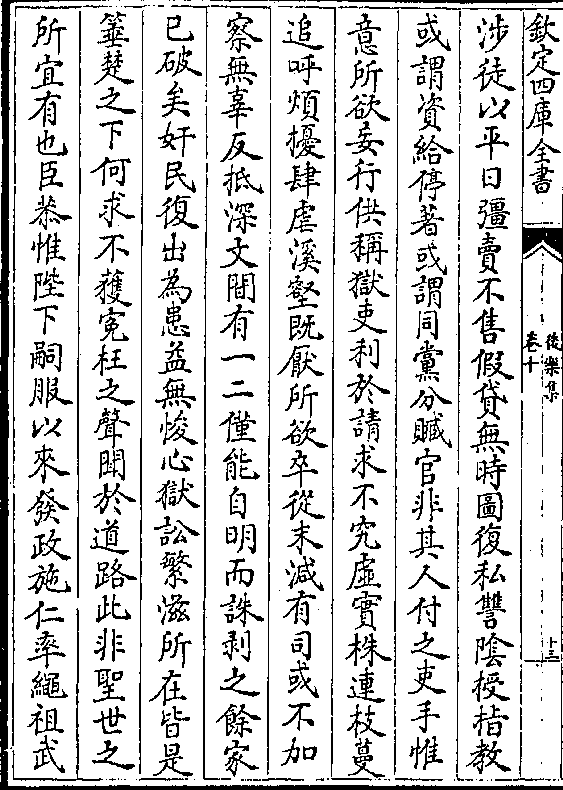 欽定四庫全書
後樂集
卷十
十三
涉徒以平日彊賣不售假貸無時圖復私讐陰授指教
或謂資給停著或謂同黨分贓官非其人付之吏手惟
意所欲妄行供稱獄吏利於請求不究虛實株連枝蔓
追呼煩擾肆虐溪壑既厭所欲卒從末減有司或不加
察無辜反抵深文間有一二僅能自明而誅剥之餘家
已破矣奸民復出為患益無悛心獄訟繁滋所在皆是
箠楚之下何求不獲寃枉之聲聞於道路此非聖世之
所宜有也臣恭惟陛下嗣服以來發政施仁率繩祖武